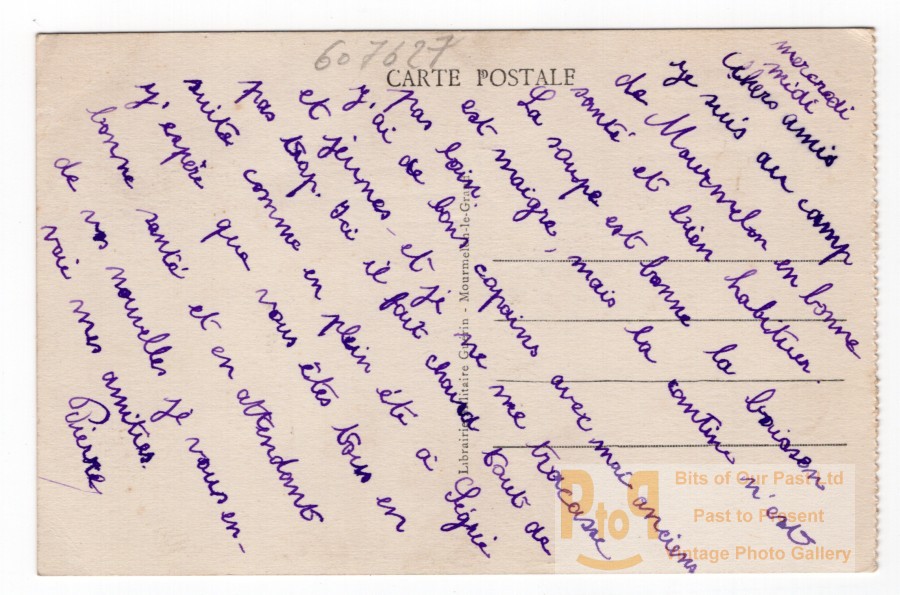 607627
CARTE POSTALE
mercredi
midi
Chers amis
Je suis au camp
de Mourmelon en bonne
santé et bien habituer.
La soupe est bonne la boisson
est maigre, mais la cantine n'est
pas loin.
J'ai de bons copains avec moi anciens
et jeunes - et je ne me tracasse
pas trop. Ici il fait chaud tout de
suite comme en plein été à Ségrie
J'espère que vous êtes tous en
bonne santé et en attendant
de vos nouvelles je vous en-
voie mes amitiés.
Pierre
Librairie Militaire Guérin - Mourmelon-le-Grand
PtoP
Bits of Our Past Ltd
Past to Present
Vintage Photo Gallery